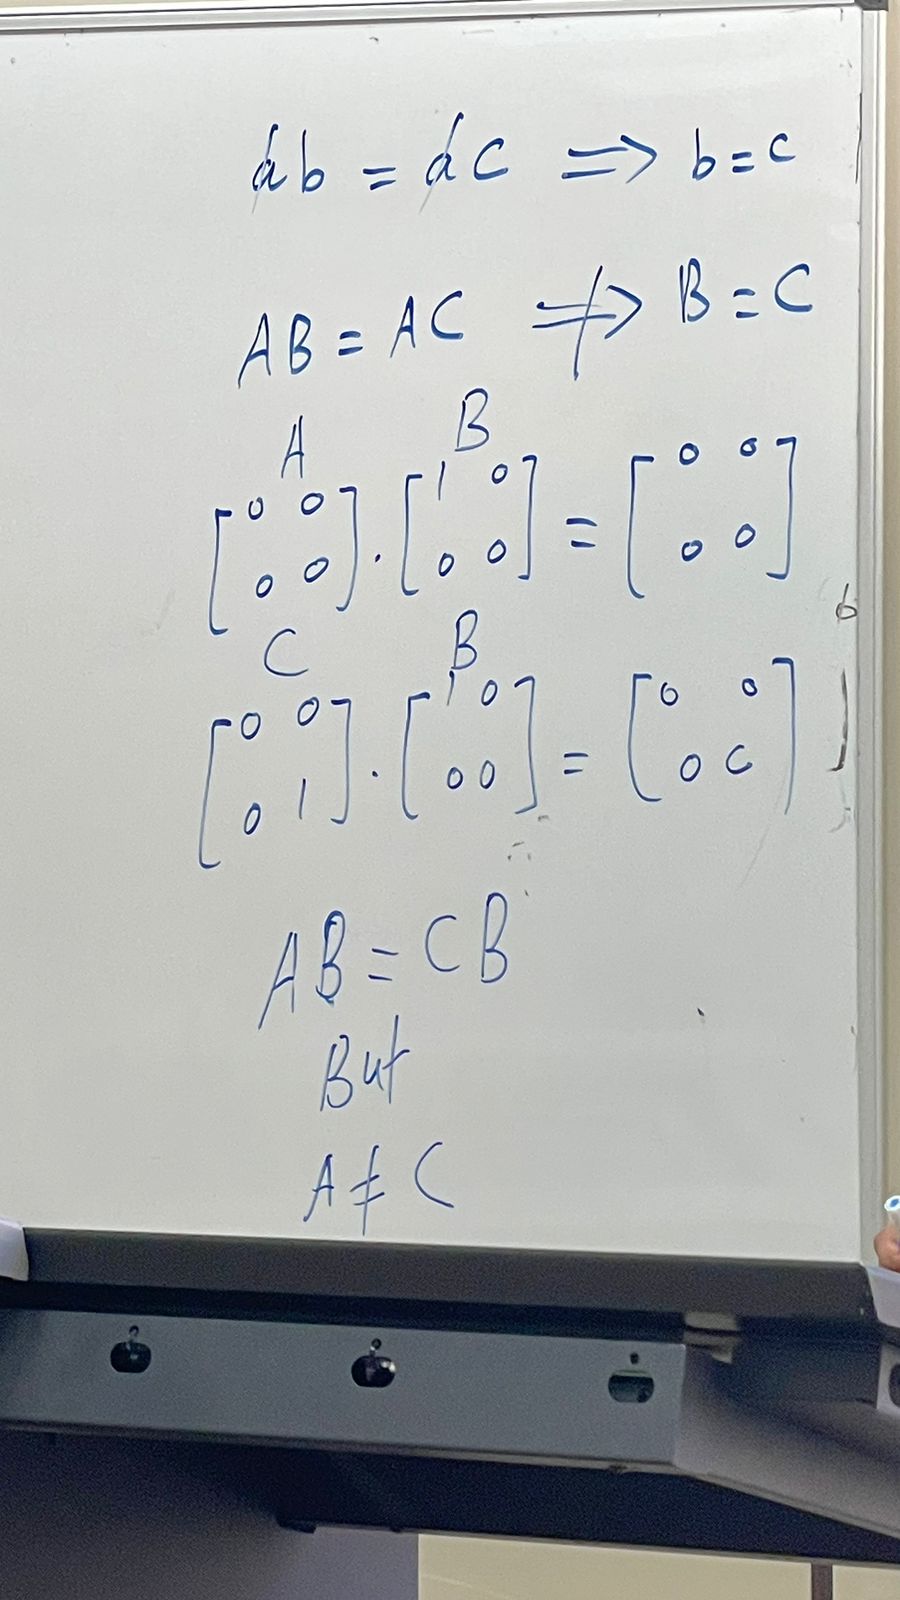 ab = ac ⟹ b = c
AB = AC ⇏ B = C
A B
[0 0 0 0] · [1 0 0 0] = [0 0 0 0]
C B
[0 0 0 1] · [1 0 0 0] = [0 0 0 0]
AB = CB
But
A ≠ C